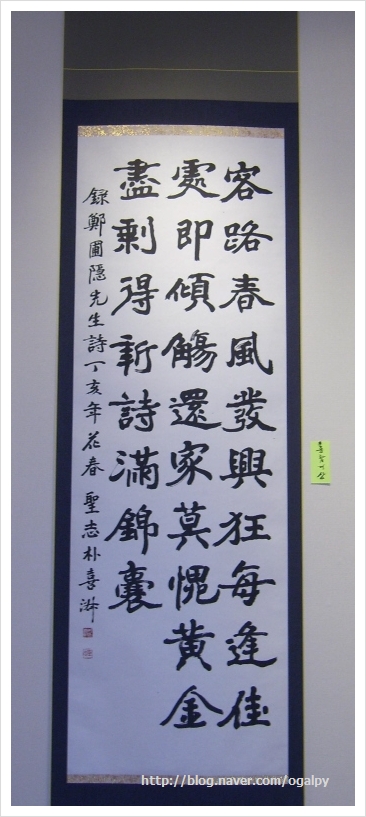 客路春風發興狂每逢佳
處即傾觴還家莫愧黃金
盡剩得新詩滿錦囊
錄鄭圃隱先生詩丁亥年花春 聖志朴喜淑
http://blog.naver.com/ogalpy